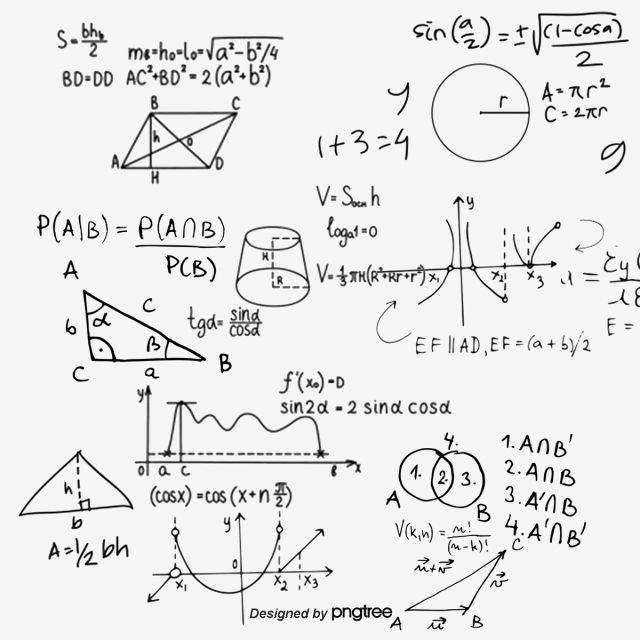 S = bh_b/2
m_c=h_o=l_o=√a²-b²/4
BD=DD AC²+BD² = 2(a²+b²)
B C
h o
A D
H
sin(a/2) = ±√(1-cosa)/2
y
r
A = πr²
C = 2πr
1+3=4
9
P(A|B) = P(A∩B)/P(B)
V= S_осн h
log_a1=0
H
R
V=1/3πH(R²+Rr+r²)
y
x₁ x₂ x₃
EF||AD, EF=(a+b)/2
E =
A
b α c
β
C a B
tgα= sinα/cosα
f'(x₀)=D
sin2α = 2 sinα cosα
y
0 a c B x
h
b
A=1/2 bh
(cosx)=cos(x+n π/2)
y
0
x₁ x₂ x₃
4.
1. 2. 3.
A B
1. A∩B'
2. A∩B
3. A'∩B
4. A'∩B'
V(k,n)= n!/(n-k)!
C
u+v
v
A u B
Designed by pngtree